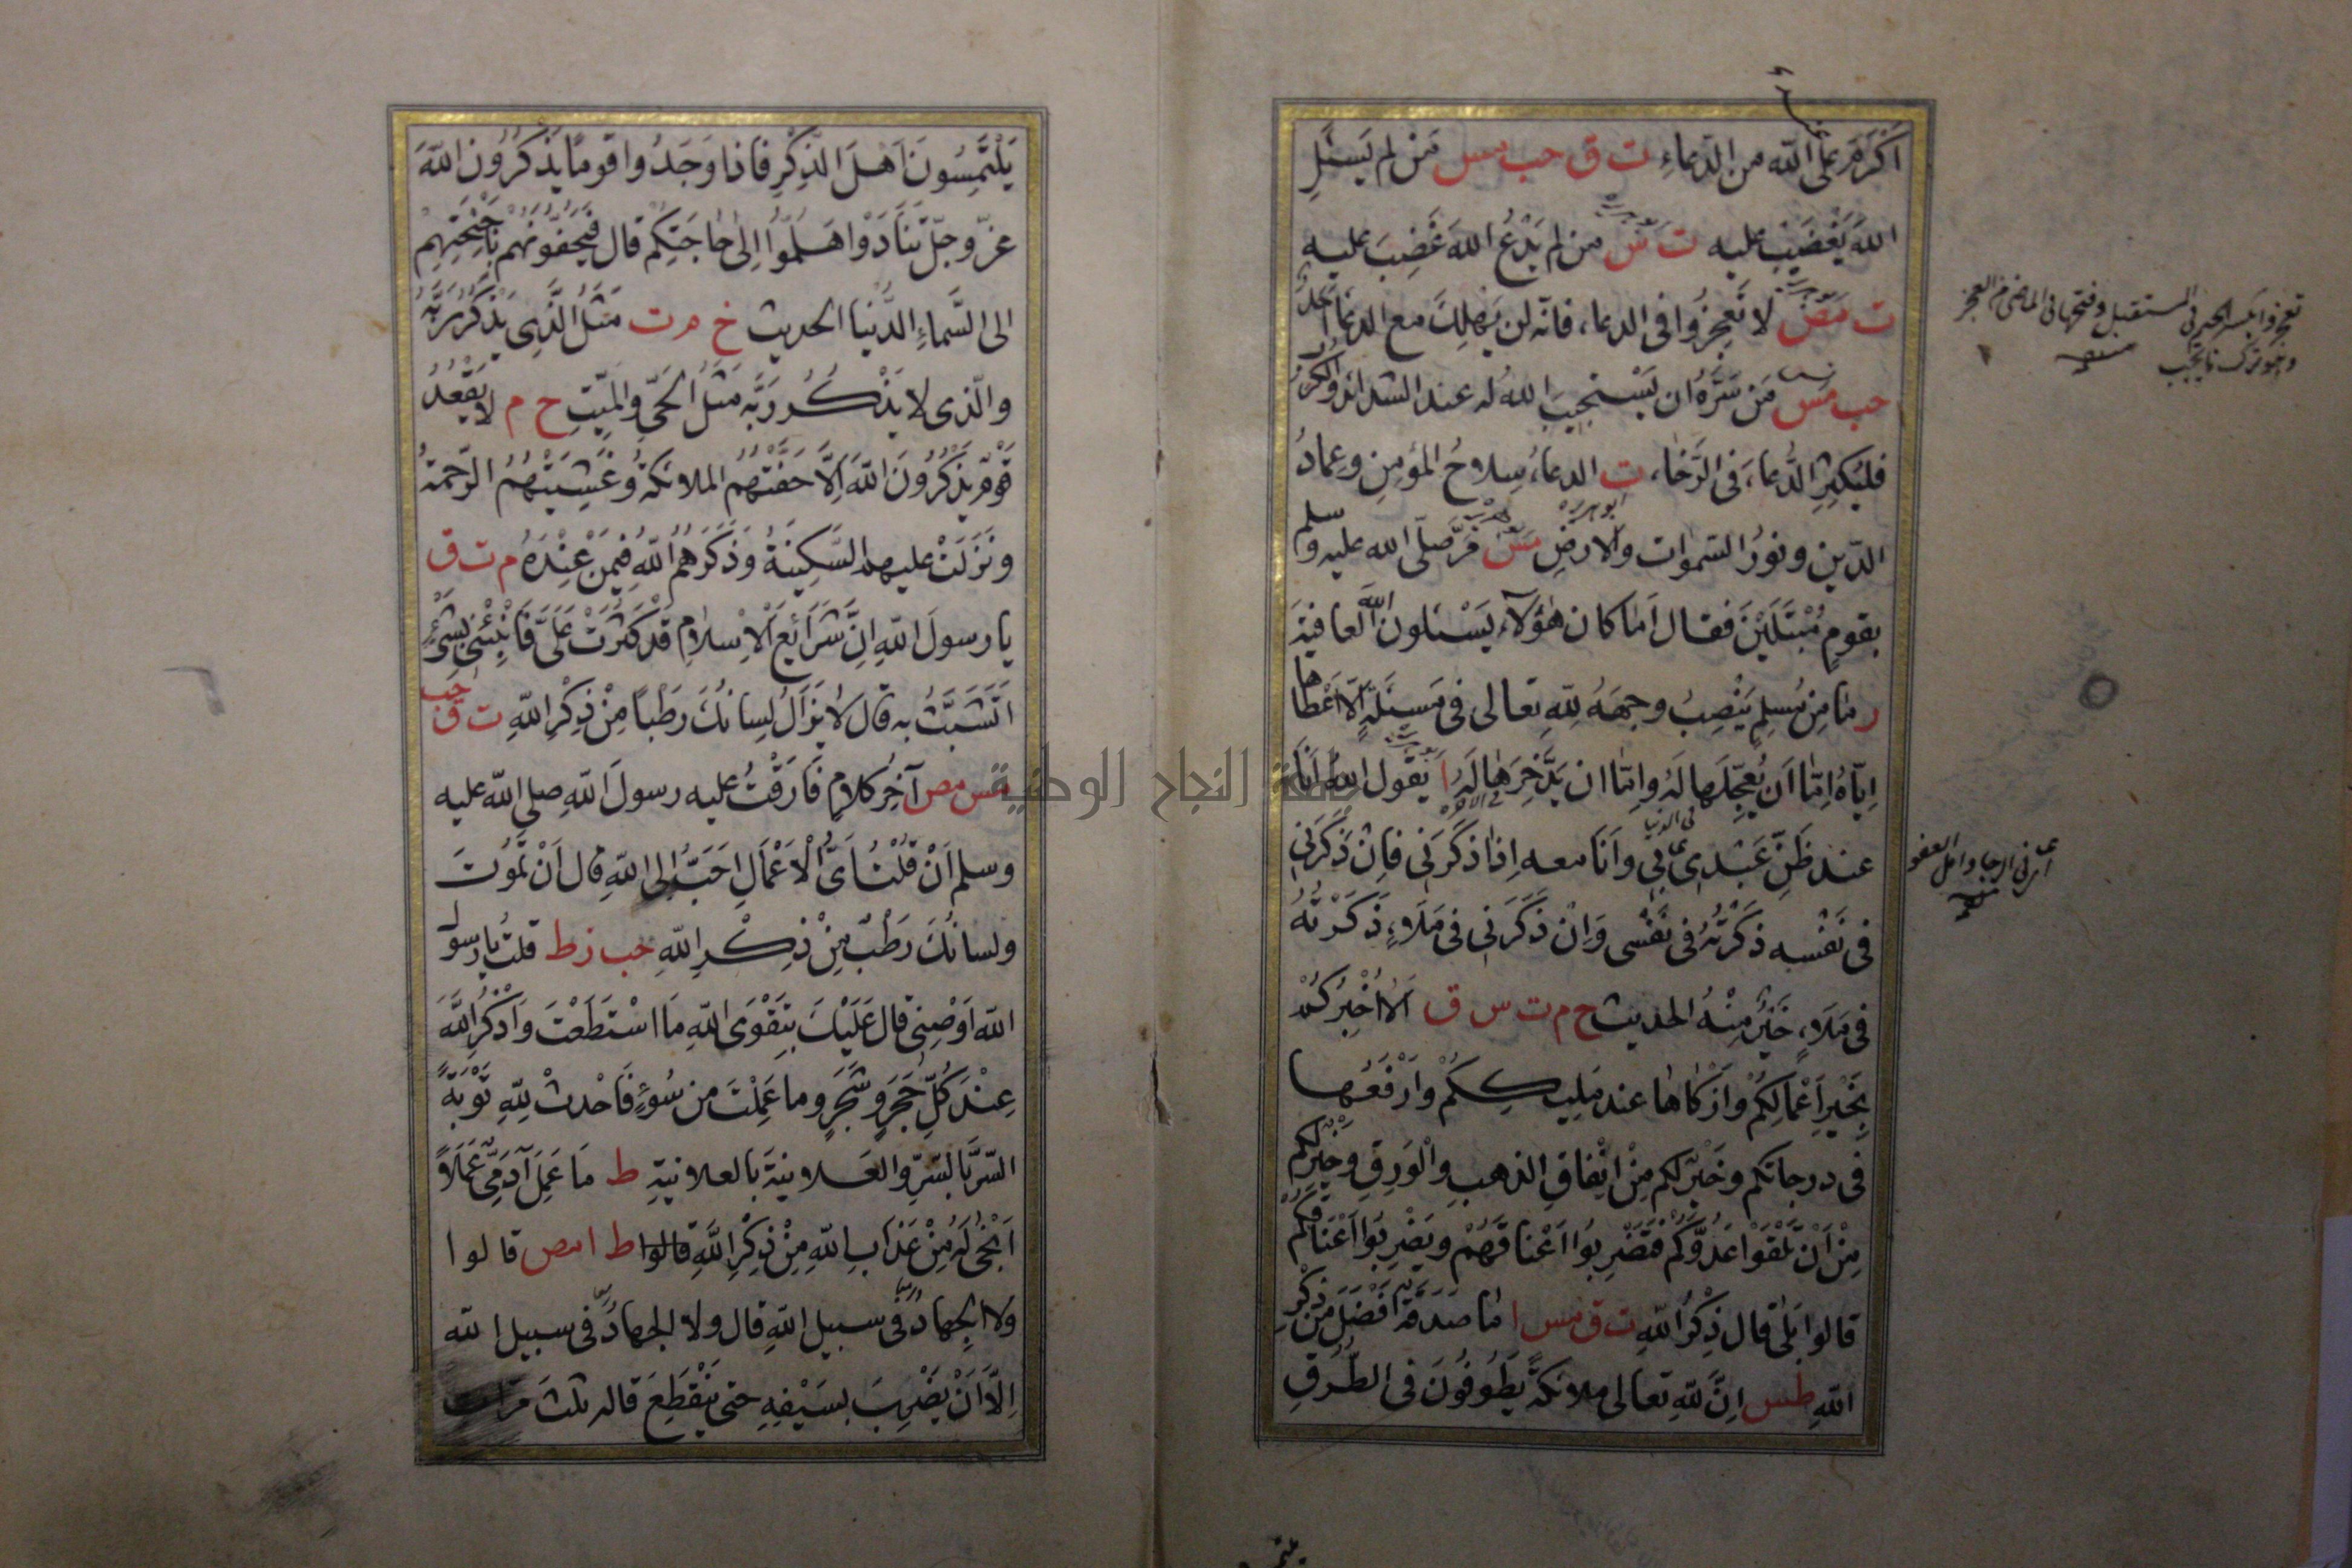 اَكْرَمَ علَى اللّٰه من الدّعاءِ ت ق حب مس مَنْ لم يَسئَلِ
اللهَ يَغْضَبْ عليه ت مس من لم يَدْعُ اللهَ غَضِبَ عليه
ت مص لا تَعجِزُوا فى الدعاء فانّه لن يَهْلِكَ مع الدعاءِ اَحدٌ
حب مس مَن سَرَّهُ ان يَسْتجيبَ اللهُ له عند الشدائد والكُرَبِ
فليُكْثِرِ الدُّعاءَ فى الرَّخاءِ ت الدعاءُ سِلاحُ المؤمِنِ وعِمادُ
الدّينِ ونورُ السّمٰوات والارضِ مس مَرَّ صلّى الله عليه وسلم
بقومٍ مُبْتَلَيْنَ فقال اَمَا كان هٰؤلاءِ يَسْئلون اللّٰهَ العافيةَ
ر ما مِن مُسلِمٍ يَنْصِبُ وجهَهُ للّٰهِ تعالى فى مَسئَلَةٍ اِلّا اَعْطاها
اِيّاهُ اِمّا اَن يُعَجِّلَها لَهُ واِمّا ان يَدَّخِرَها لَهُ ا يَقول اللهُ اَنَا
عند ظَنِّ عَبْدِى بِى واَنَا معه اِذا ذكَرَنى فاِنْ ذَكَرَنِى
فى نَفْسه ذكَرْتُهُ فى نَفْسى وَاِنْ ذَكَرَنى فى مَلاءٍ ذَكَرْتُهُ
فى مَلاءٍ خَيْرٍ مِنْهُ الحديث خ م ت س ق اَلا اُخْبِرُكُمْ
بِخَيْرِ اَعْمالِكُمْ وَاَزْكاها عند مَلِيكِكُمْ وارْفَعِها
فى درجاتكم وخَيْرٍ لكم مِنْ اِنْفاقِ الذهبِ والْوَرِقِ وخَيْرٍ لكم
مِنْ اَنْ تَلْقَوْا عَدُوَّكُمْ فَتَضْرِبُوا اَعْناقَهُمْ ويَضْرِبُوا اَعْناقَكُمْ
قالوا بَلٰى قال ذِكْرُ اللّٰهِ ت ق مس ا ما صَدَقَةٌ اَفْضَلَ مِنْ ذِكْرِ
اللّٰهِ طس اِنَّ للّٰهِ تعالى ملائكةً يَطُوفُونَ فى الطُّرُقِ
فى الدنيا
اى فى الرجاء وامل العفو
يَلْتَمِسُونَ اَهْلَ الذِّكْرِ فاذا وَجَدُوا قومًا يَذكُرُون اللّٰهَ
عزّ وجلّ تَنَادَوْا هَلُمُّوا اِلى حاجَتِكُمْ قال فَيَحُفّونَهُم بأَجْنِحَتِهِمْ
الى السَّماءِ الدُّنيا الحديث خ م ت مَثَلُ الَّذِى يَذكُرُ رَبَّهُ
والّذى لا يَذْكُرُ رَبَّه مَثَلُ الْحَىِّ والمَيِّتِ خ م لا يَقْعُدُ
قَوْمٌ يَذْكُرُونَ اللّٰهَ اِلَّا حَفَّتْهُمُ الملائكةُ وغَشِيَتْهُمُ الرَّحمةُ
ونَزَلَتْ عليهم السَّكِينَةُ وَذَكَرَهُمُ اللّٰهُ فِيمَنْ عِنْدَهُ م ت ق
يا رسولَ اللّٰهِ اِنَّ شَرَائِعَ الْاِسْلامِ قَدْ كَثُرَتْ عَلَىَّ فَاَنْبِئْنى بِشَىْءٍ
اَتَشَبَّثُ به قال لا يَزَالُ لِسانُكَ رَطْبًا مِنْ ذِكْرِ اللّٰهِ ت ق حب
مس مص آخِرُ كلامٍ فَارَقْتُ عليه رسولَ اللّٰهِ صلى اللّٰه عليه
وسلم اَنْ قُلْتُ اَىُّ الْاَعْمَالِ اَحَبُّ اِلى اللّٰهِ قال اَنْ تَمُوتَ
ولسانُكَ رَطْبٌ مِنْ ذِكْرِ اللّٰهِ حب ز ط قلتُ يا رسولَ
اللّٰه اَوْصِنِى قال عَلَيْكَ بِتَقْوَى اللّٰهِ مَا اسْتَطَعْتَ وَاذْكُرِ اللّٰهَ
عِنْدَ كُلِّ حَجَرٍ وشَجَرٍ وما عَمِلْتَ من سُوءٍ فَاحْدِثْ لِلّٰهِ تَوْبَةً
السّرَّ بالسِّرِّ والعَلانيةَ بالعلانيةِ ط مَا عَمِلَ آدَمِىٌّ عَمَلًا
اَنْجٰى لَهُ مِنْ عَذَابِ اللّٰهِ مِنْ ذِكْرِ اللّٰهِ قالوا ط ا مص قالوا
ولا الجِهادُ فى سبيل اللّٰهِ قال ولا الجهادُ فى سبيل اللّٰه
اِلّا اَنْ يَضْرِبَ بسَيْفِهِ حتى يَنْقَطِعَ قاله ثلثَ مرّات
جامعة النجاح الوطنية